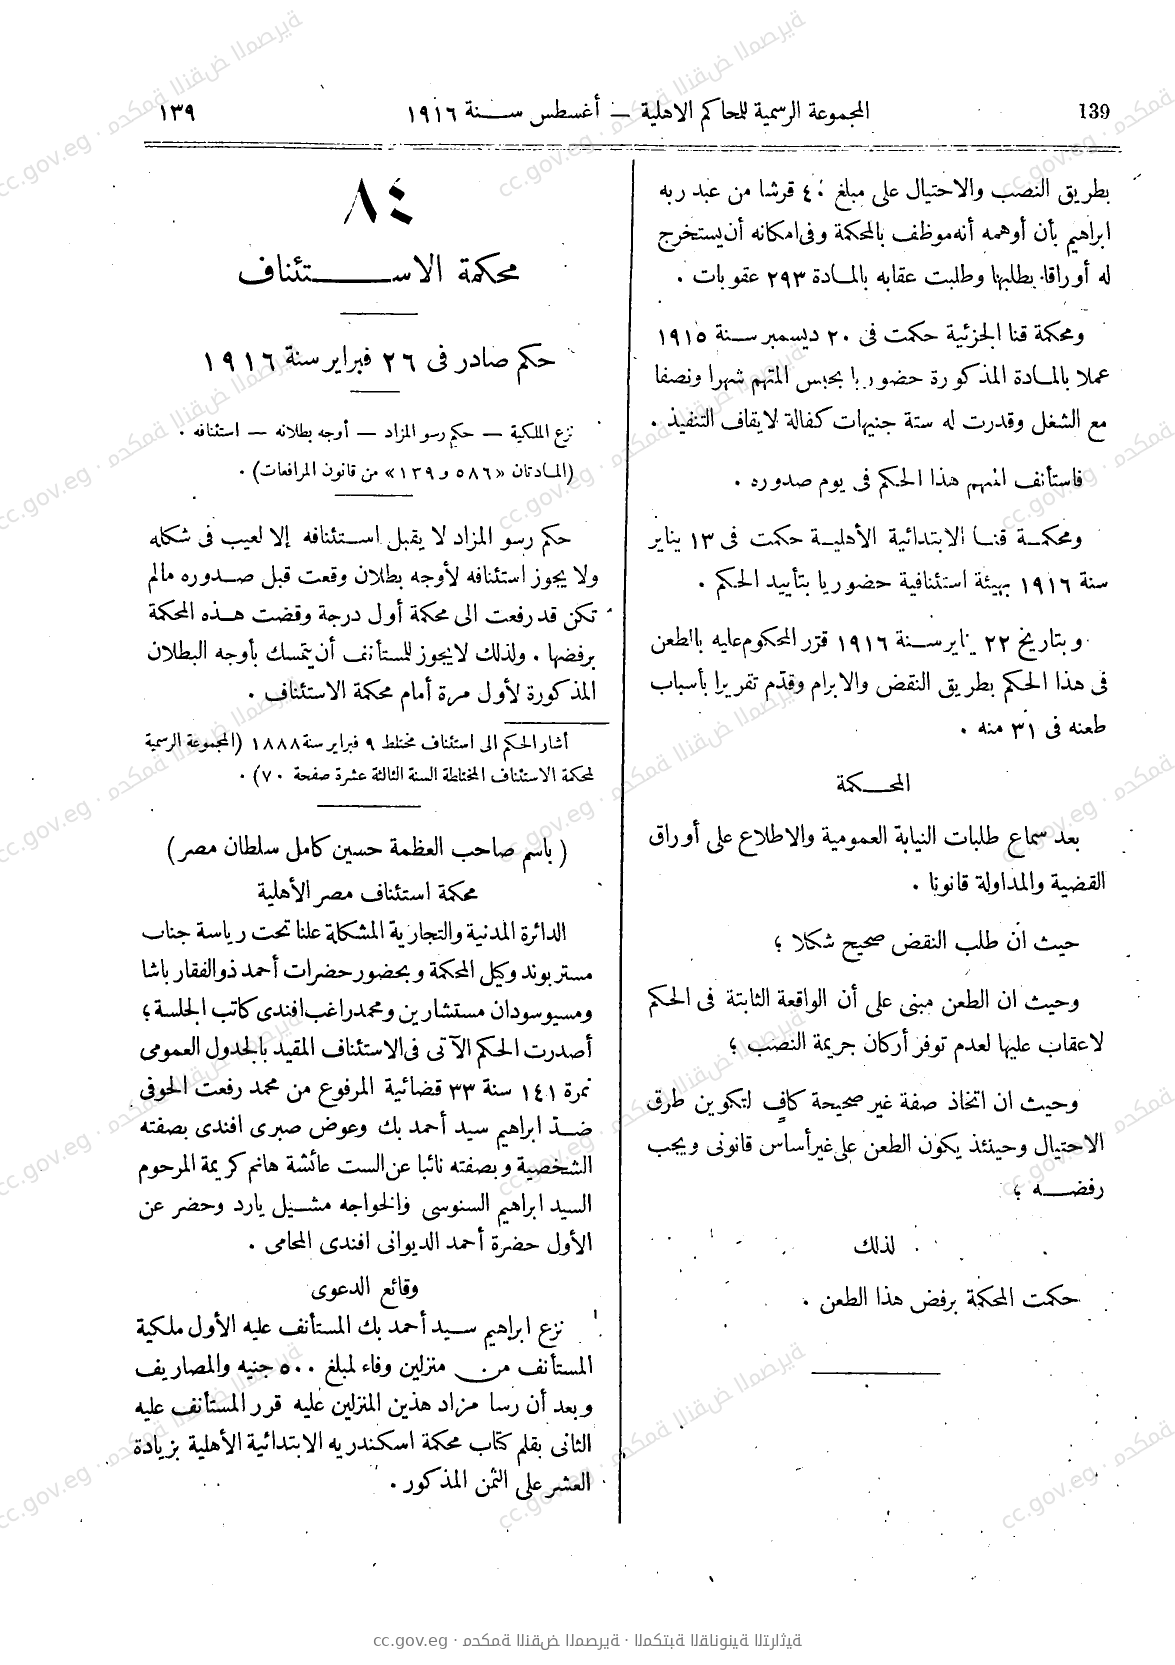 139
المجموعة الرسمية للمحاكم الاهلية — أغسطس سنة ١٩١٦
١٣٩
بطريق النصب والاحتيال على مبلغ ٤٠ قرشا من عبد ربه
ابراهيم بأن أوهمه أنه موظف بالمحكمة وفى امكانه أن يستخرج
له أوراقا يطلبها وطلبت عقابه بالمادة ٢٩٣ عقوبات .
ومحكمة قنا الجزئية حكمت فى ٢٠ ديسمبر سنة ١٩١٥
عملا بالمادة المذكورة حضوريا بحبس المتهم شهرا ونصفا
مع الشغل وقدرت له ستة جنيهات كفالة لايقاف التنفيذ .
فاستأنف المتهم هذا الحكم فى يوم صدوره .
ومحكمة قنا الابتدائية الأهلية حكمت فى ١٣ يناير
سنة ١٩١٦ بهيئة استئنافية حضوريا بتأييد الحكم .
وبتاريخ ٢٢ يناير سنة ١٩١٦ قرّر المحكوم عليه بالطعن
فى هذا الحكم بطريق النقض والابرام وقدّم تقريرا بأسباب
طعنه فى ٣١ منه .
المحكمة
بعد سماع طلبات النيابة العمومية والاطلاع على أوراق
القضية والمداولة قانونا .
حيث ان طلب النقض صحيح شكلا ؛
وحيث ان الطعن مبنى على أن الواقعة الثابتة فى الحكم
لاعقاب عليها لعدم توفر أركان جريمة النصب ؛
وحيث ان اتخاذ صفة غير صحيحة كافٍ لتكوين طرق
الاحتيال وحينئذ يكون الطعن على غير أساس قانونى ويجب
رفضه ؛
لذلك
حكمت المحكمة برفض هذا الطعن .
٨٤
محكمة الاستئناف
حكم صادر فى ٢٦ فبراير سنة ١٩١٦
نزع الملكية — حكم رسو المزاد — أوجه بطلانه — استئنافه .
(المادتان «٥٨٦ و ١٣٩» من قانون المرافعات) .
حكم رسو المزاد لا يقبل استئنافه إلا لعيب فى شكله
ولا يجوز استئنافه لأوجه بطلان وقعت قبل صدوره مالم
تكن قد رفعت الى محكمة أول درجة وقضت هذه المحكمة
برفضها . ولذلك لا يجوز للمستأنف أن يتمسك بأوجه البطلان
المذكورة لأول مرة أمام محكمة الاستئناف .
أشار الحكم الى استئناف مختلط ٩ فبراير سنة ١٨٨٨ (المجموعة الرسمية
لمحكمة الاستئناف المختلطة السنة الثالثة عشرة صفحة ٧٠) .
( باسم صاحب العظمة حسين كامل سلطان مصر )
محكمة استئناف مصر الأهلية
الدائرة المدنية والتجارية المشكلة علنا تحت رياسة جناب
مستر بوند وكيل المحكمة وبحضور حضرات أحمد ذوالفقار باشا
ومسيو سودان مستشارين ومحمد راغب افندى كاتب الجلسة ؛
أصدرت الحكم الآتى فى الاستئناف المقيد بالجدول العمومى
نمرة ١٤١ سنة ٣٣ قضائية المرفوع من محمد رفعت الحوفى
ضدّ ابراهيم سيد أحمد بك وعوض صبرى افندى بصفته
الشخصية وبصفته نائبا عن الست عائشة هانم كريمة المرحوم
السيد ابراهيم السنوسى والخواجه مشيل يارد وحضر عن
الأول حضرة أحمد الديوانى افندى المحامى .
وقائع الدعوى
نزع ابراهيم سيد أحمد بك المستأنف عليه الأول ملكية
المستأنف من منزلين وفاء لمبلغ ٥٠٠ جنيه والمصاريف
وبعد أن رسا مزاد هذين المنزلين عليه قرر المستأنف عليه
الثانى بقلم كتاب محكمة اسكندريه الابتدائية الأهلية بزيادة
العشر على الثمن المذكور .
cc.gov.eg · محكمة النقض المصرية · المكتبة القانونية التراثية